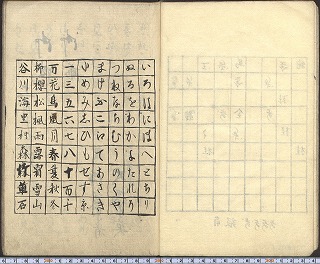 いろはにほへとちり
ぬるをわかよたれそ
つねならむうのくや
まけふこえてあさき
ゆめみしゑひもせす
一三五六七八十百千
万花鳥風月春夏秋冬
柳櫻松楓雨露霜雪山
谷川海里村森草石